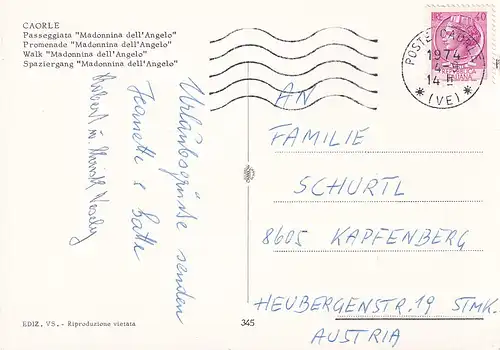 CAORLE
Passeggiata "Madonnina dell'Angelo"
Promenade "Madonnina dell'Angelo"
Walk "Madonnina dell'Angelo"
Spaziergang "Madonnina dell'Angelo"
Urlaubsgrüsse senden
40
POSTE CAORLE
1974
4-9
14
* (VE) *
AN
FAMILIE
SCHURTL
8605 KAPFENBERG
HEUBERGENSTR. 19 STMK.
AUSTRIA
EDIZ. VS. - Riproduzione vietata
345